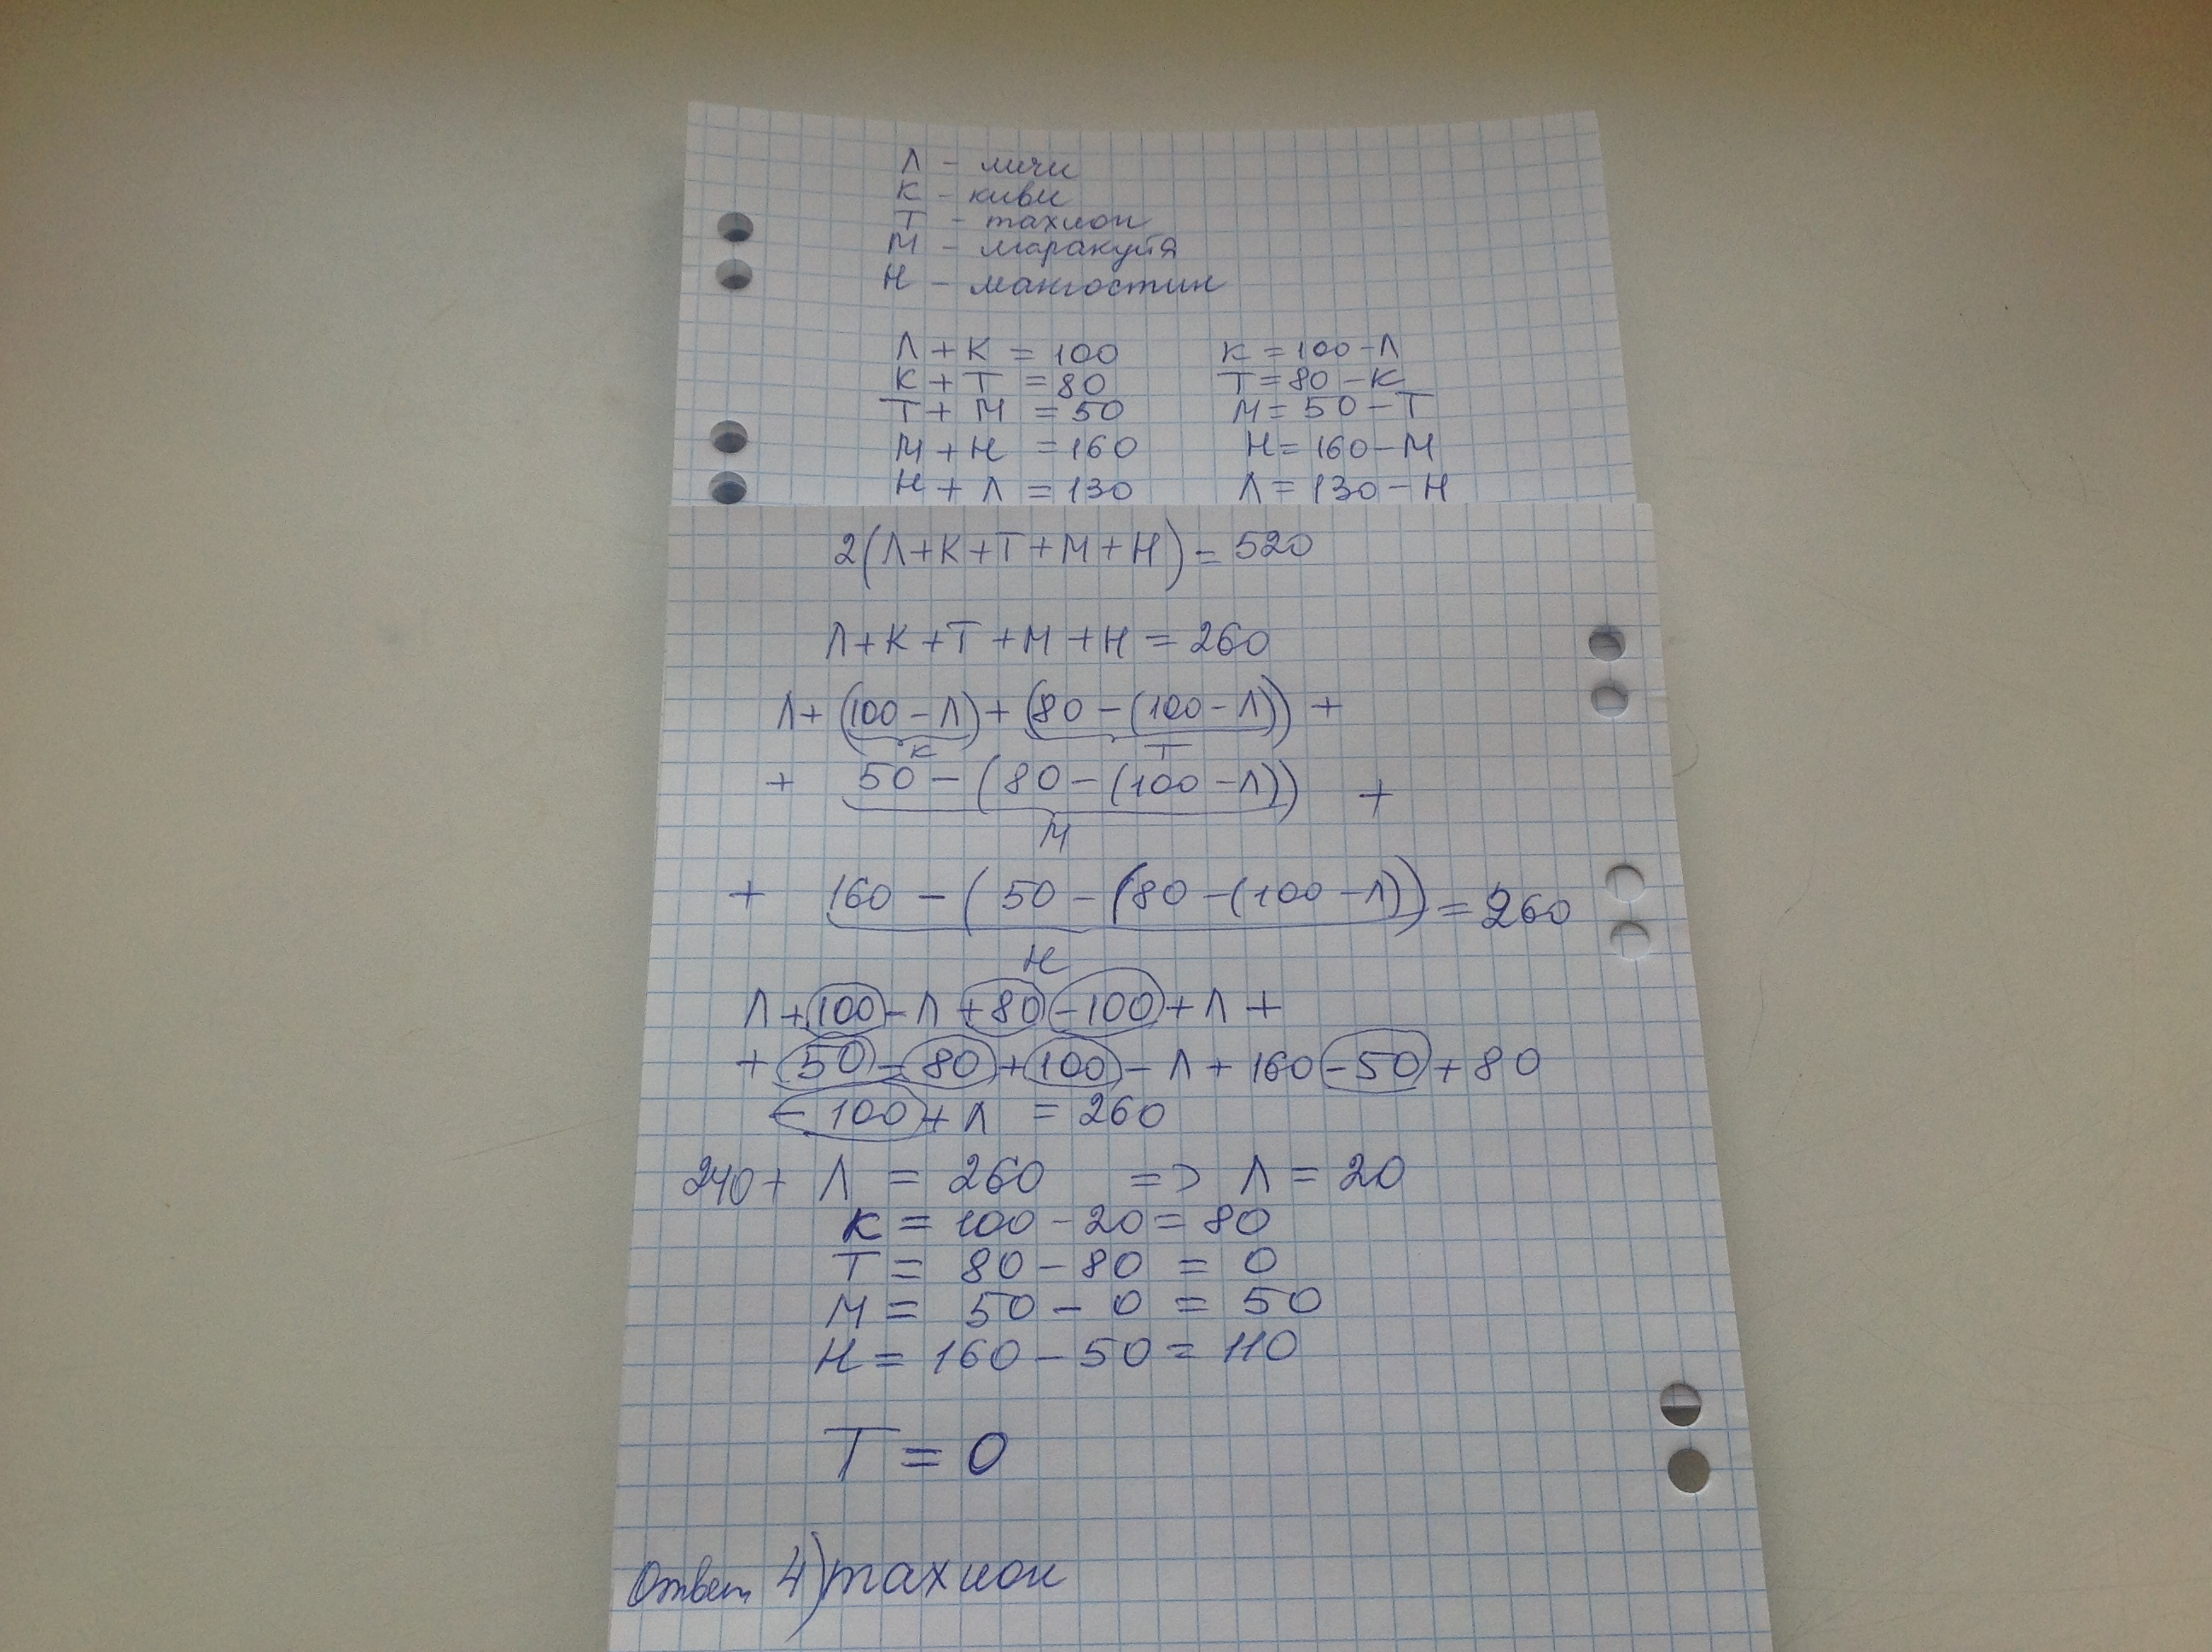 Л - личи
К - киви
Т - тахион
М - маракуйя
Н - мангостин
Л + К = 100 К = 100 - Л
К + Т = 80 Т = 80 - К
Т + М = 50 М = 50 - Т
М + Н = 160 Н = 160 - М
Н + Л = 130 Л = 130 - Н
2(Л+К+Т+М+Н) = 520
Л+К+Т+М+Н = 260
Л+(100-Л)+(80-(100-Л))+
К Т
+ 50-(80-(100-Л)) +
М
+ 160-(50-(80-(100-Л)) = 260
Н
Л+100-Л+80-100+Л+
+50-80+100-Л+160-50+80
-100+Л = 260
240+ Л = 260 => Л = 20
К = 100-20 = 80
Т = 80-80 = 0
М = 50-0 = 50
Н = 160-50 = 110
Т = 0
Ответ 4) тахион